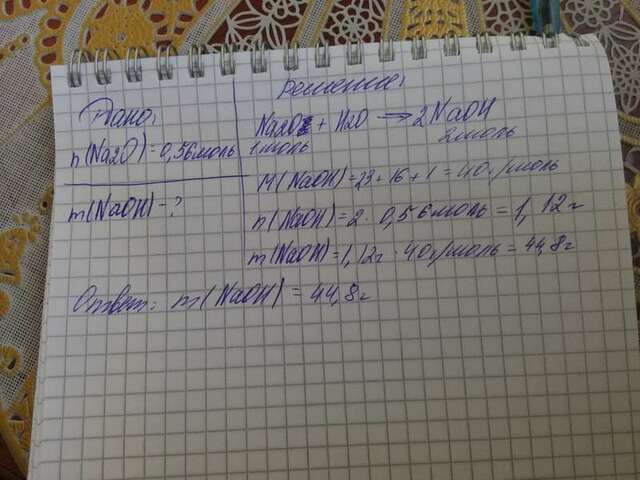 Дано:
n(Na2O) = 0,56моль
m(NaOH) - ?
Решение:
Na2O + H2O → 2NaOH
1моль 2моль
M(NaOH) = 23 + 16 + 1 = 40г/моль
n(NaOH) = 2 · 0,56моль = 1,12г
m(NaOH) = 1,12г · 40г/моль = 44,8г
Ответ: m(NaOH) = 44,8г